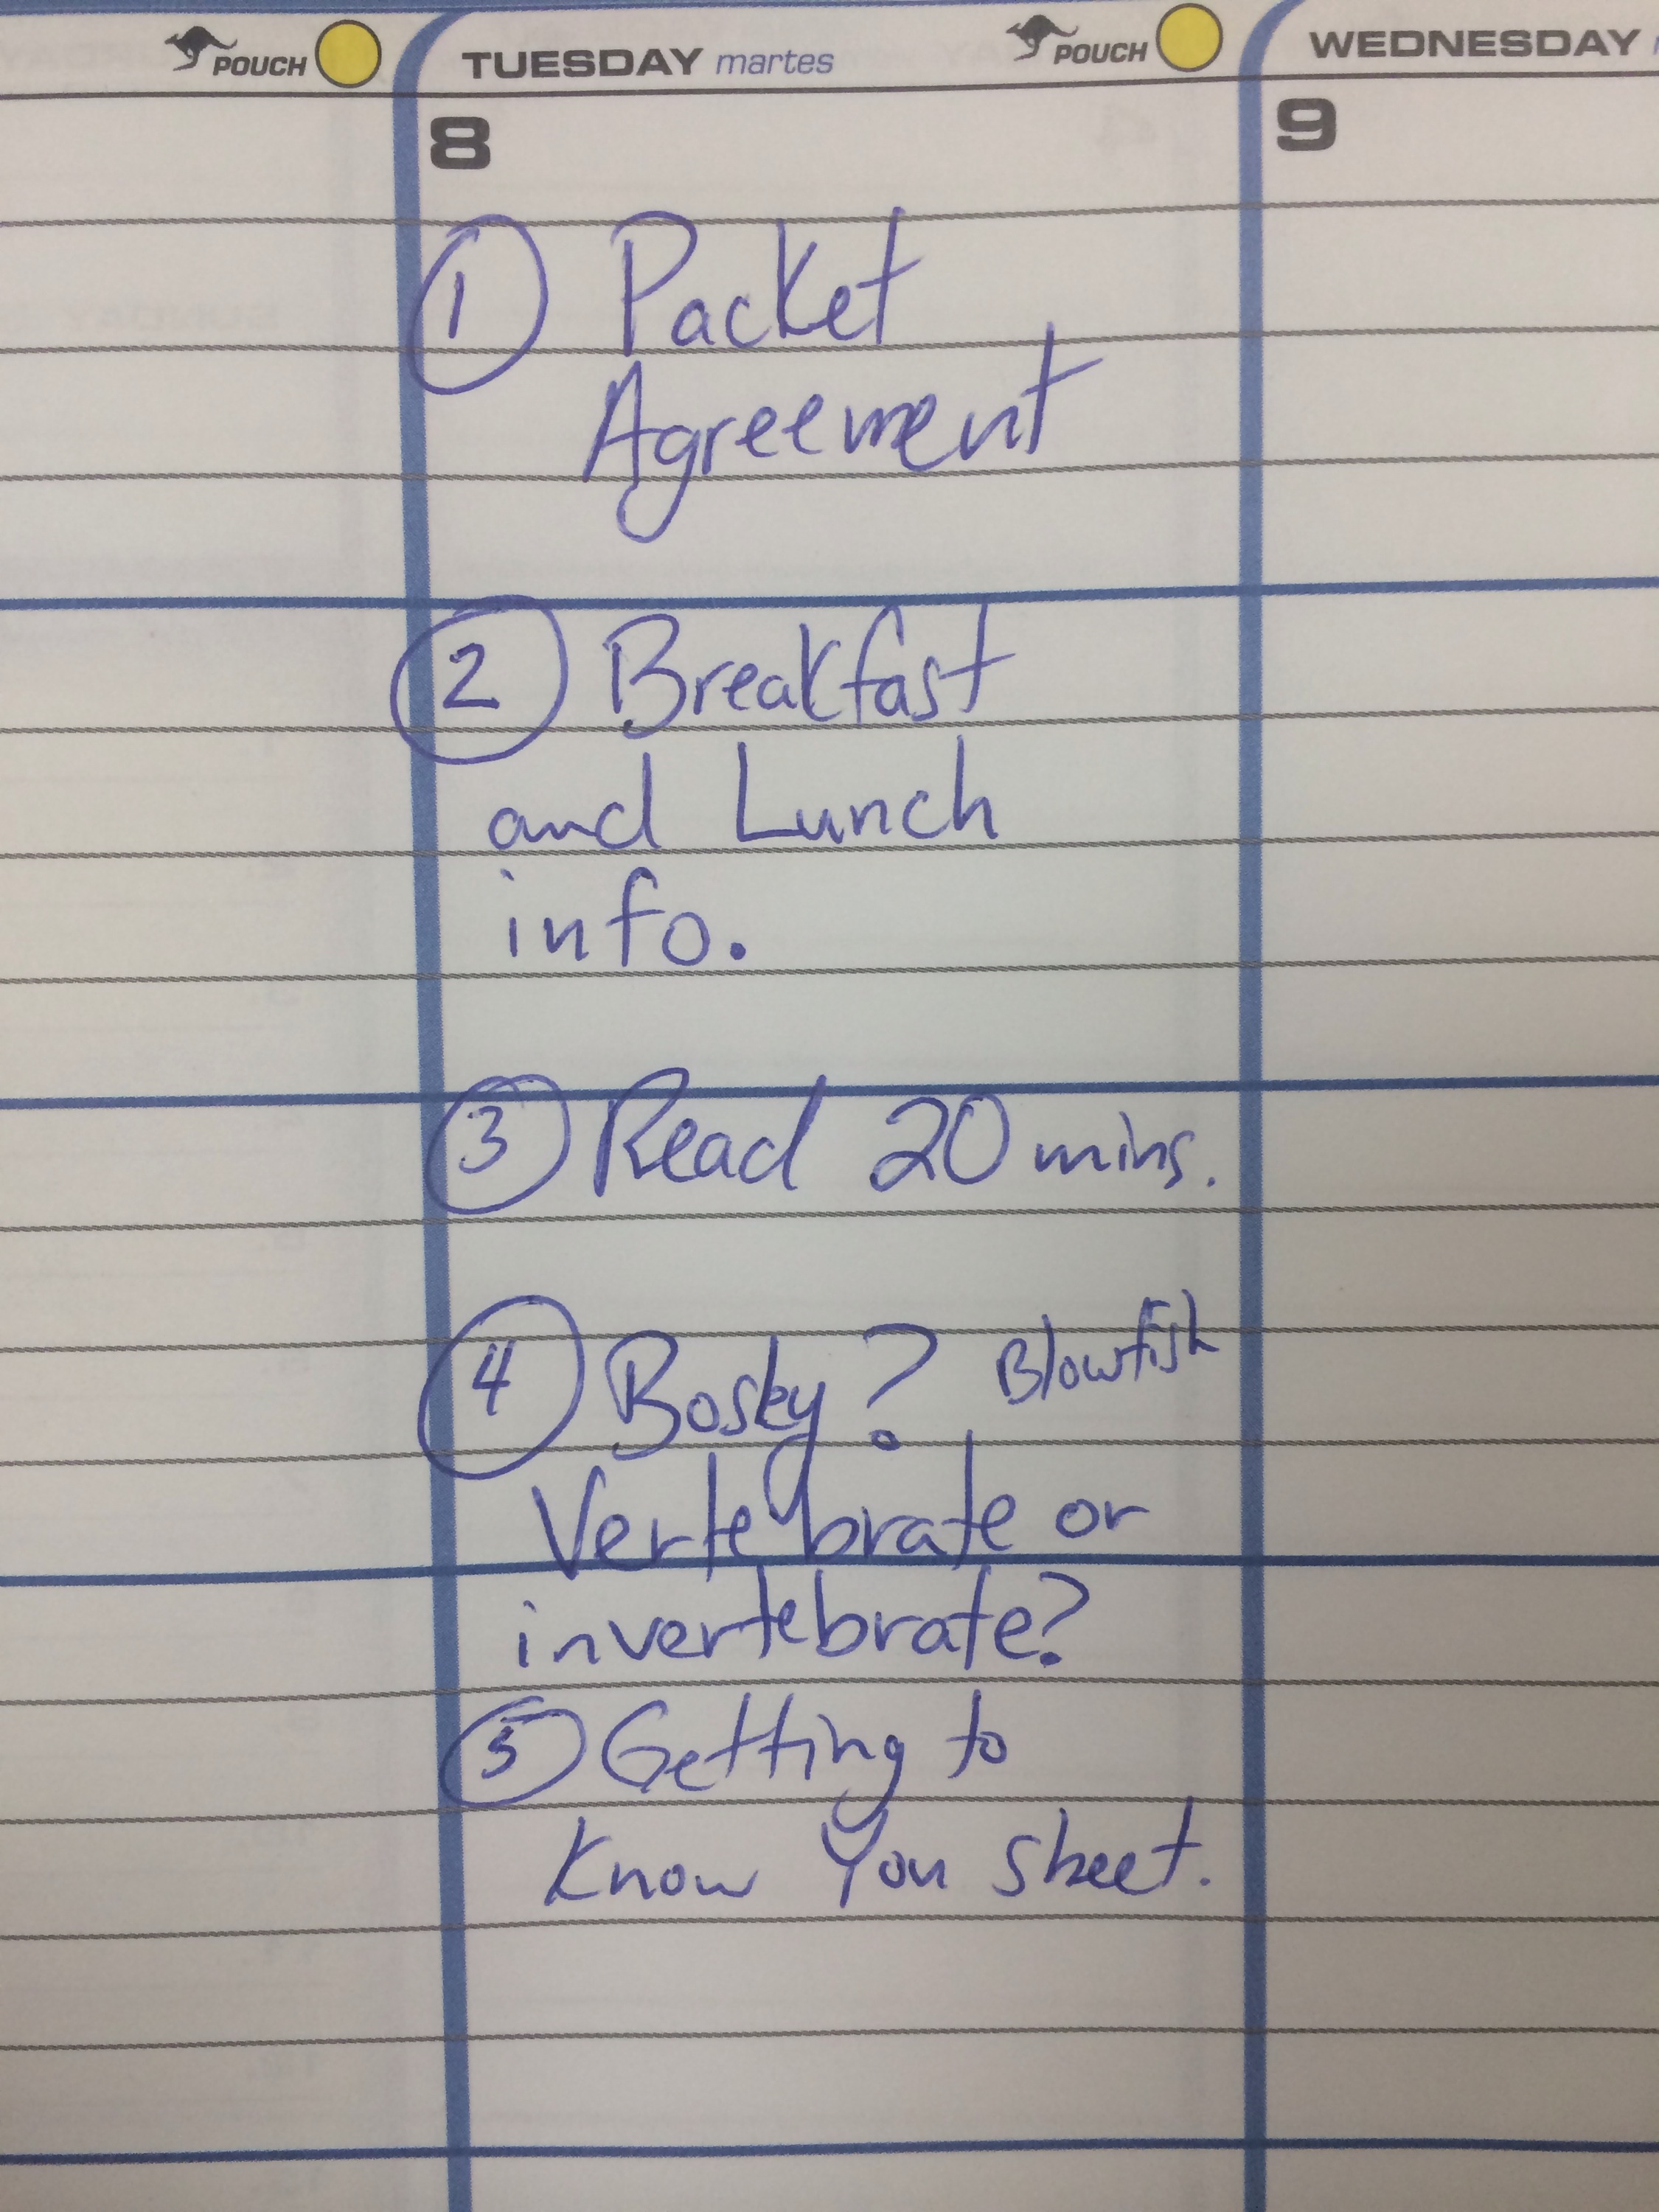 POUCH TUESDAY martes POUCH WEDNESDAY
8 9
1 Packet
Agreement
2 Breakfast
and Lunch
info.
3 Read 20 mins.
4 Bosky? Blowfish
Vertebrate or
invertebrate?
5 Getting to
Know You sheet.